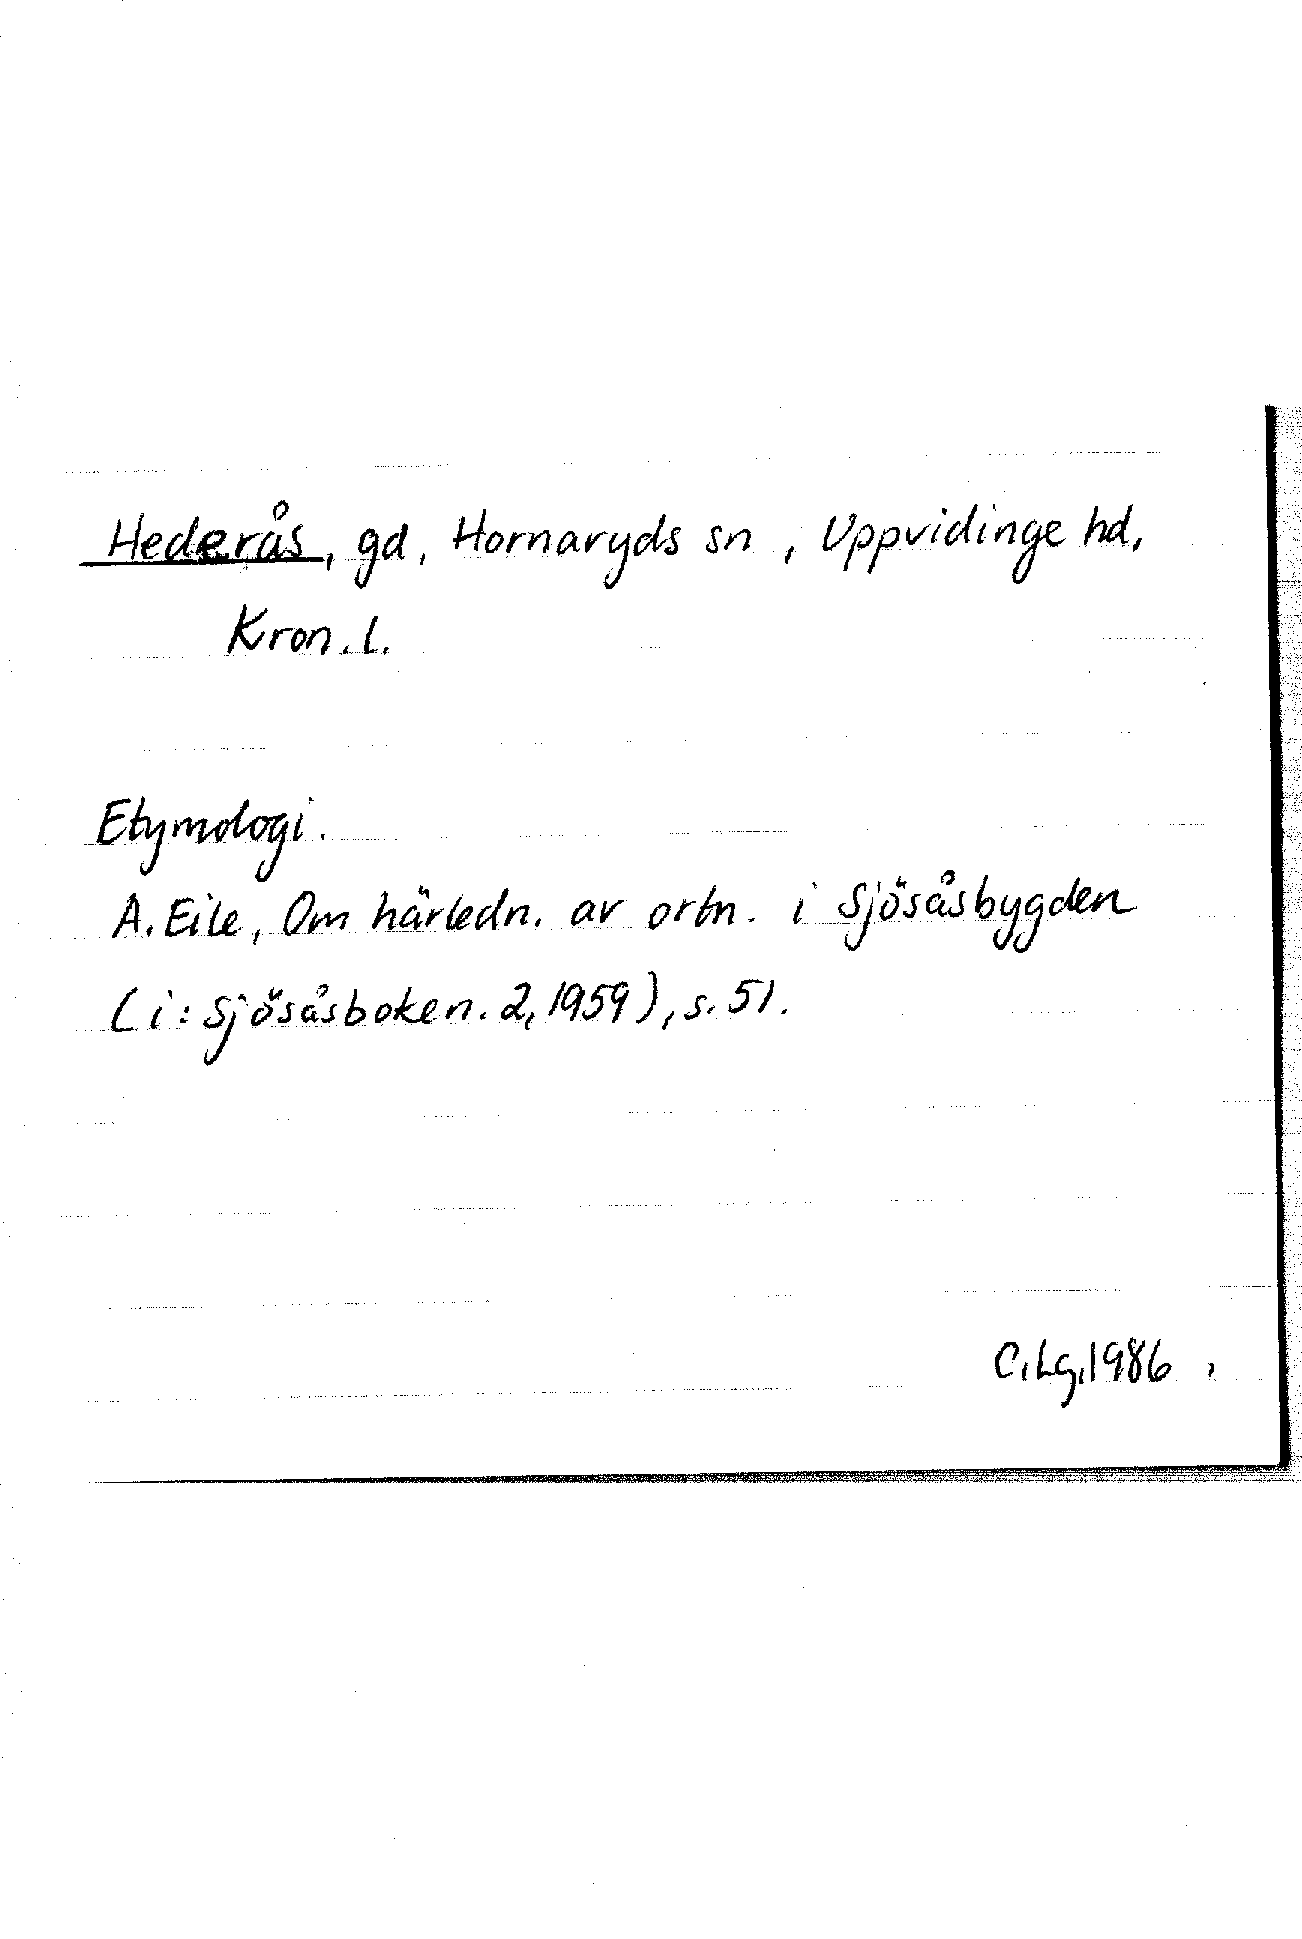 Hederås, gd, Hornaryds sn, Uppvidinge hd,
Kron. l.
Etymologi.
A. Eile, Om härledn. av ortn. i Sjösåsbygden
(i: Sjösåsboken. 2, 1959), s. 51.
C. Lg, 1986.